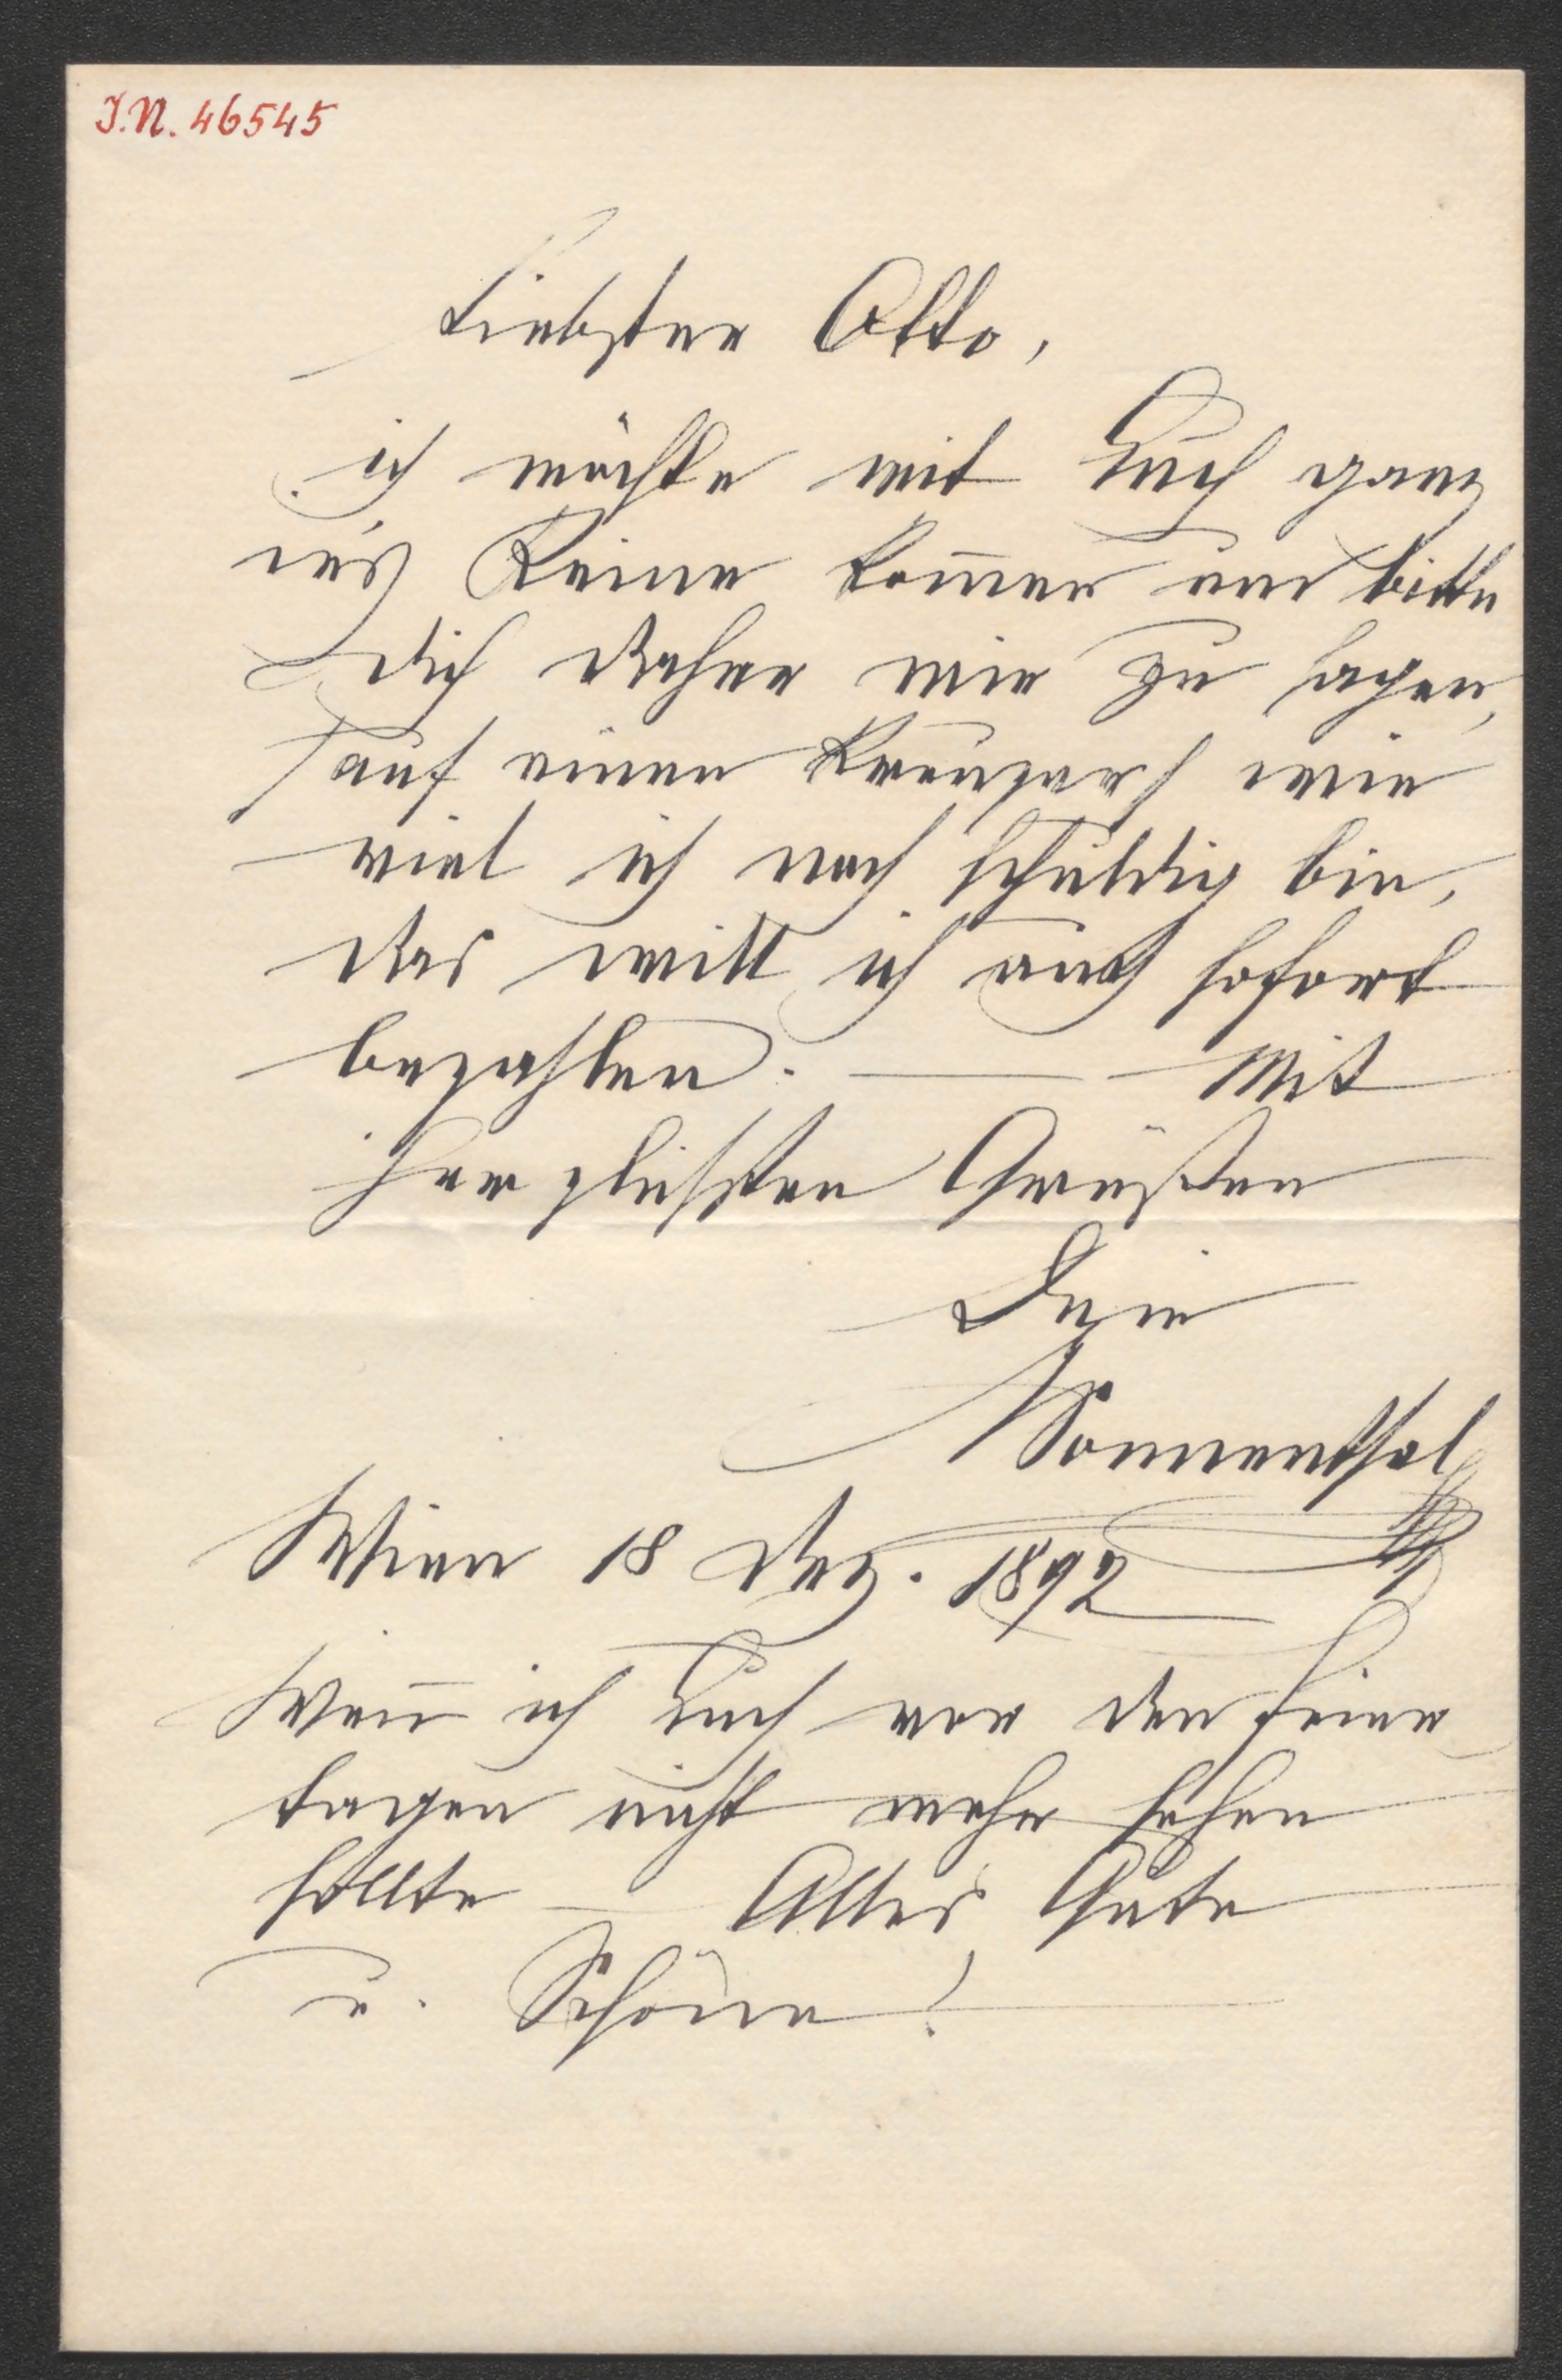 I.N. 46545
Liebster Otto,
ich möchte mit Euch ganz
in's Reine kom̄en und bitte
Dich daher mir zu sagen,
(auf einen Kreuzer) wie
viel ich noch schuldig bin,
das will ich auch sofort
bezahlen. — Mit
herzlichsten Grüßen
Dein
Sonnenthal
Wien 18 Dez. 1892
Wen̄ ich Euch vor den Feier
tagen nicht mehr sehen
sollte — Alles Gute
u. Schöne!